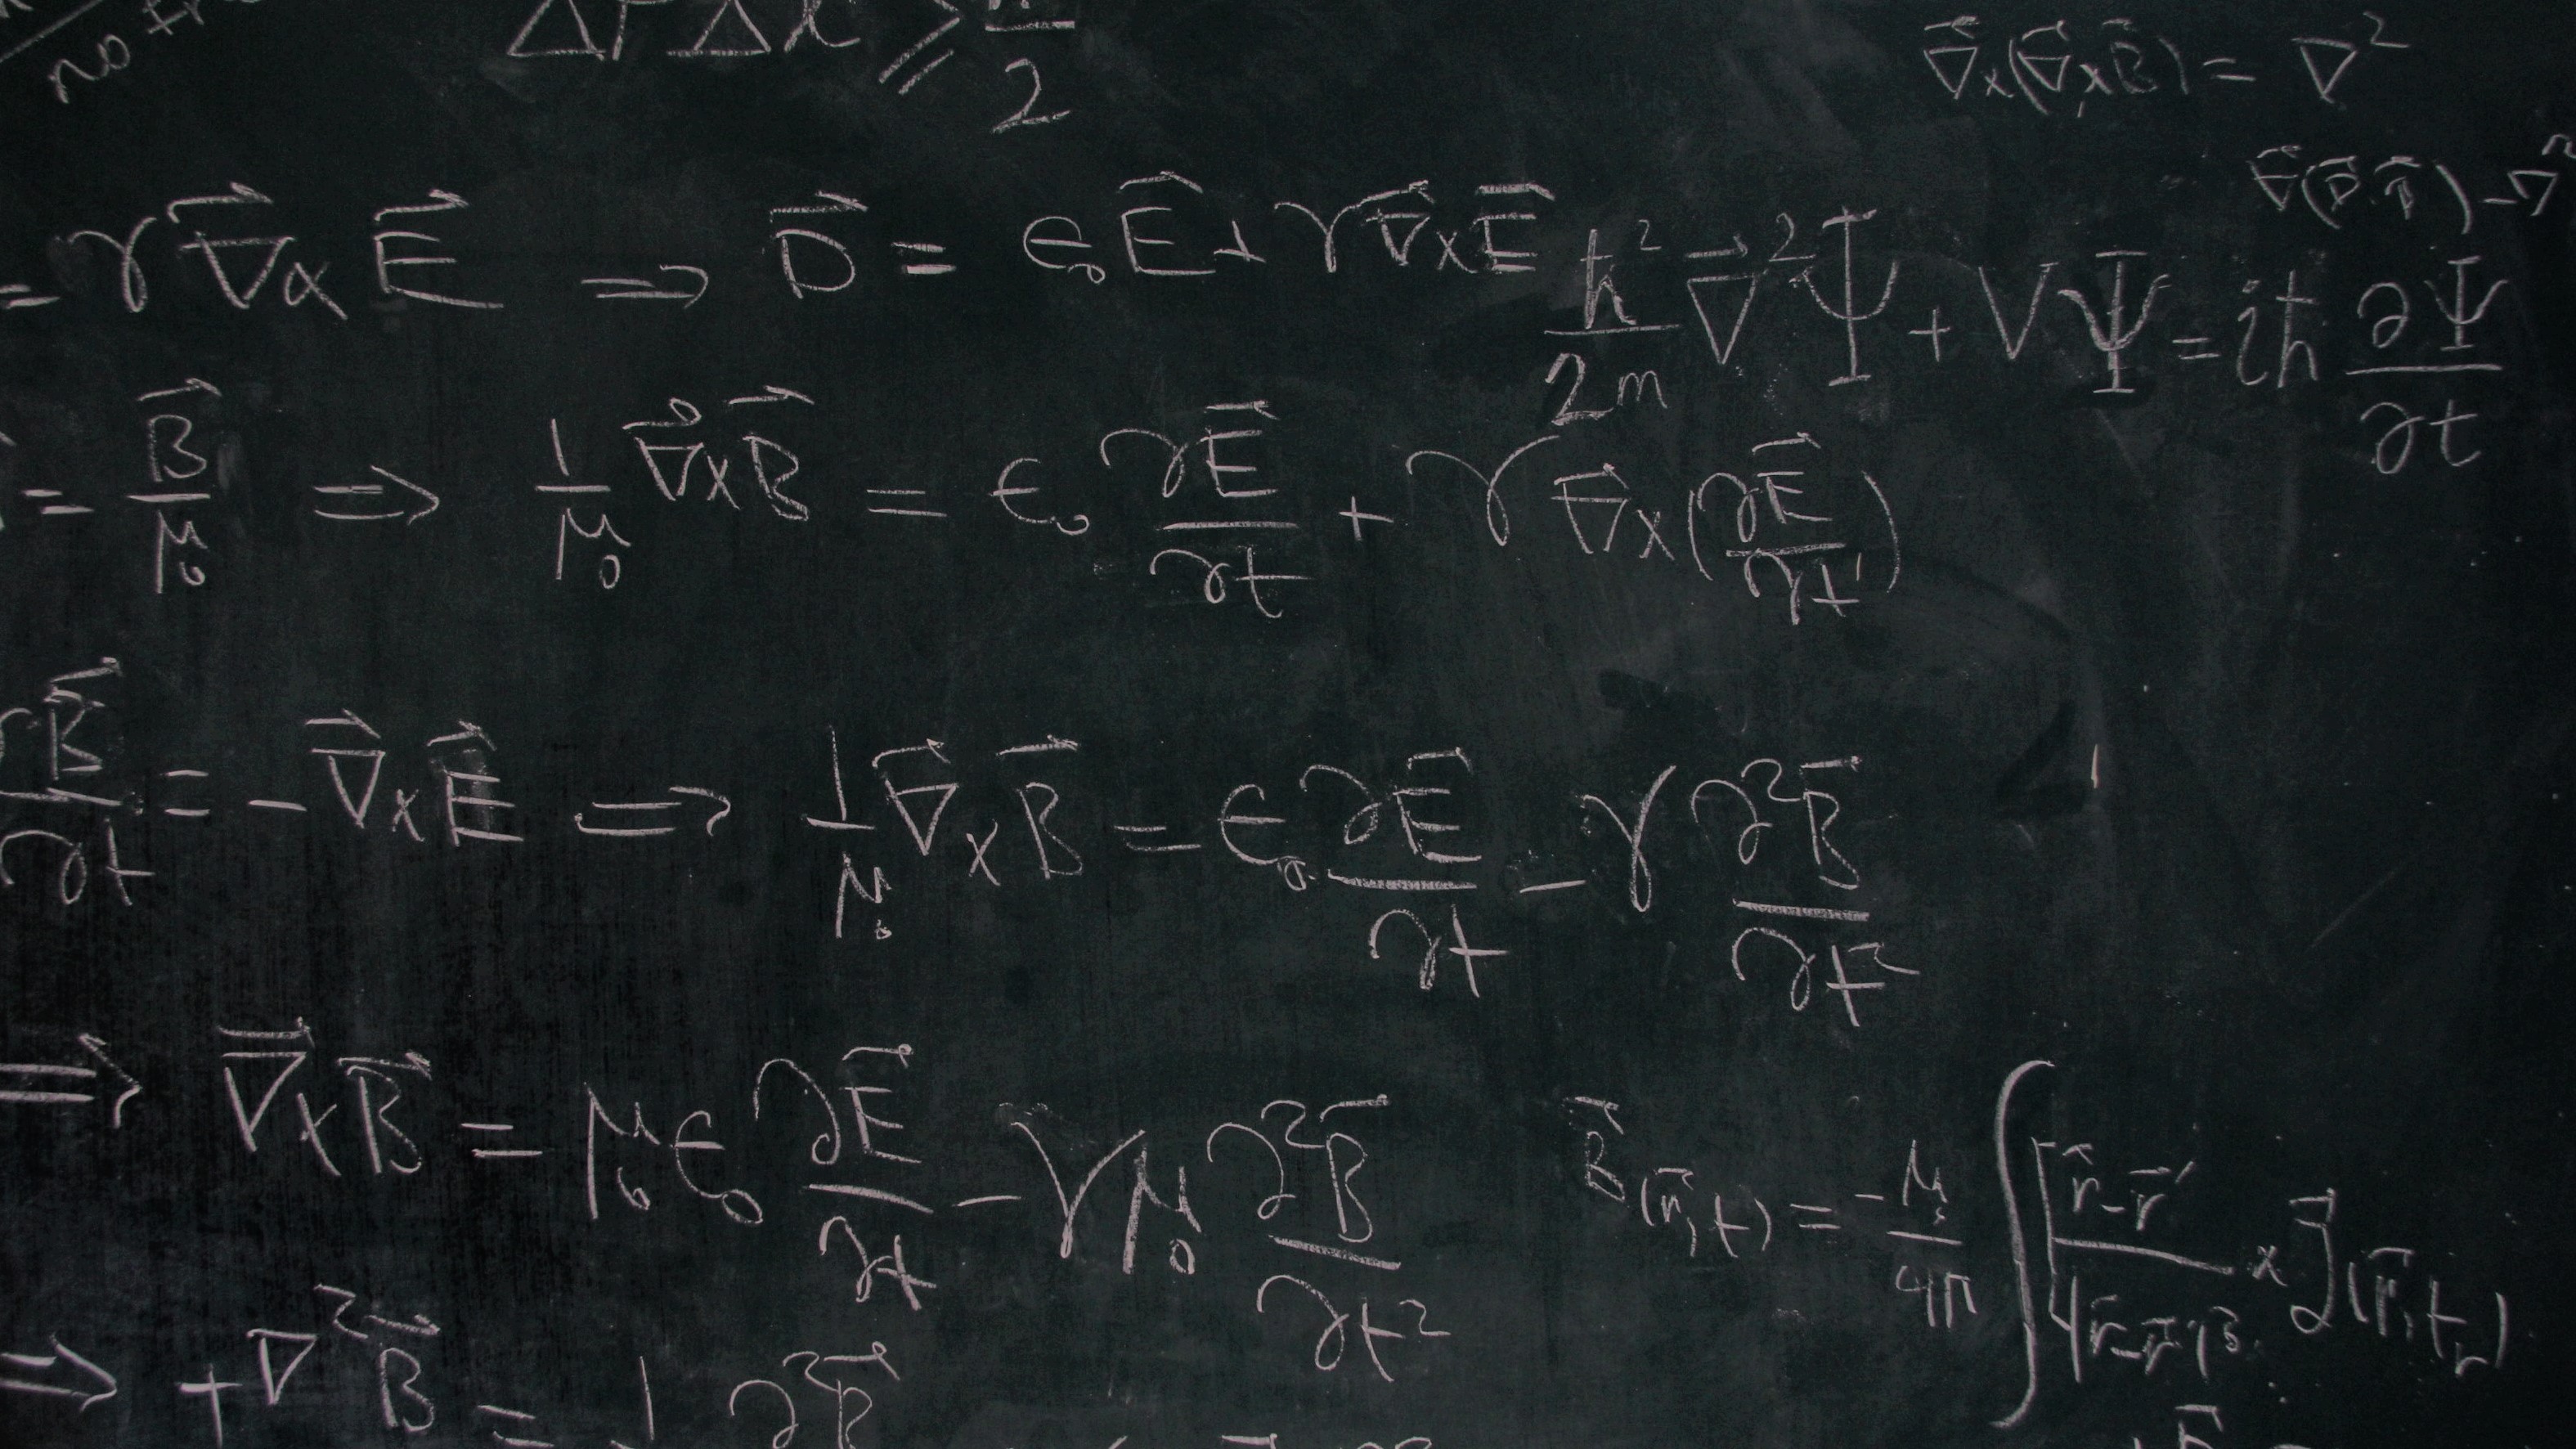 ΔPΔx ≥ ħ/2
∇⃗×(∇⃗×B⃗) = ∇²
= γ∇⃗×E⃗ ⇒ D⃗ = ϵ₀E⃗ + γ∇⃗×E⃗
ħ²/2m ∇⃗²Ψ + VΨ = iħ ∂Ψ/∂t
= B⃗/μ₀ ⇒ 1/μ₀ ∇⃗×B⃗ = ϵ₀ ∂E⃗/∂t + γ∇⃗×(∂E⃗/∂t)
∂B⃗/∂t = -∇⃗×E⃗ ⇒ 1/μ₀ ∇⃗×B⃗ = ϵ₀ ∂E⃗/∂t - γ ∂²B⃗/∂t²
⇒ ∇⃗×B⃗ = μ₀ϵ₀ ∂E⃗/∂t - γμ₀ ∂²B⃗/∂t²
B⃗(r⃗,t) = -μ₀/4π ∫[r⃗-r⃗′/|r⃗-r⃗′|³ × J⃗(r⃗,tᵣ)
⇒ +∇²B⃗ = 1 ∂²B⃗